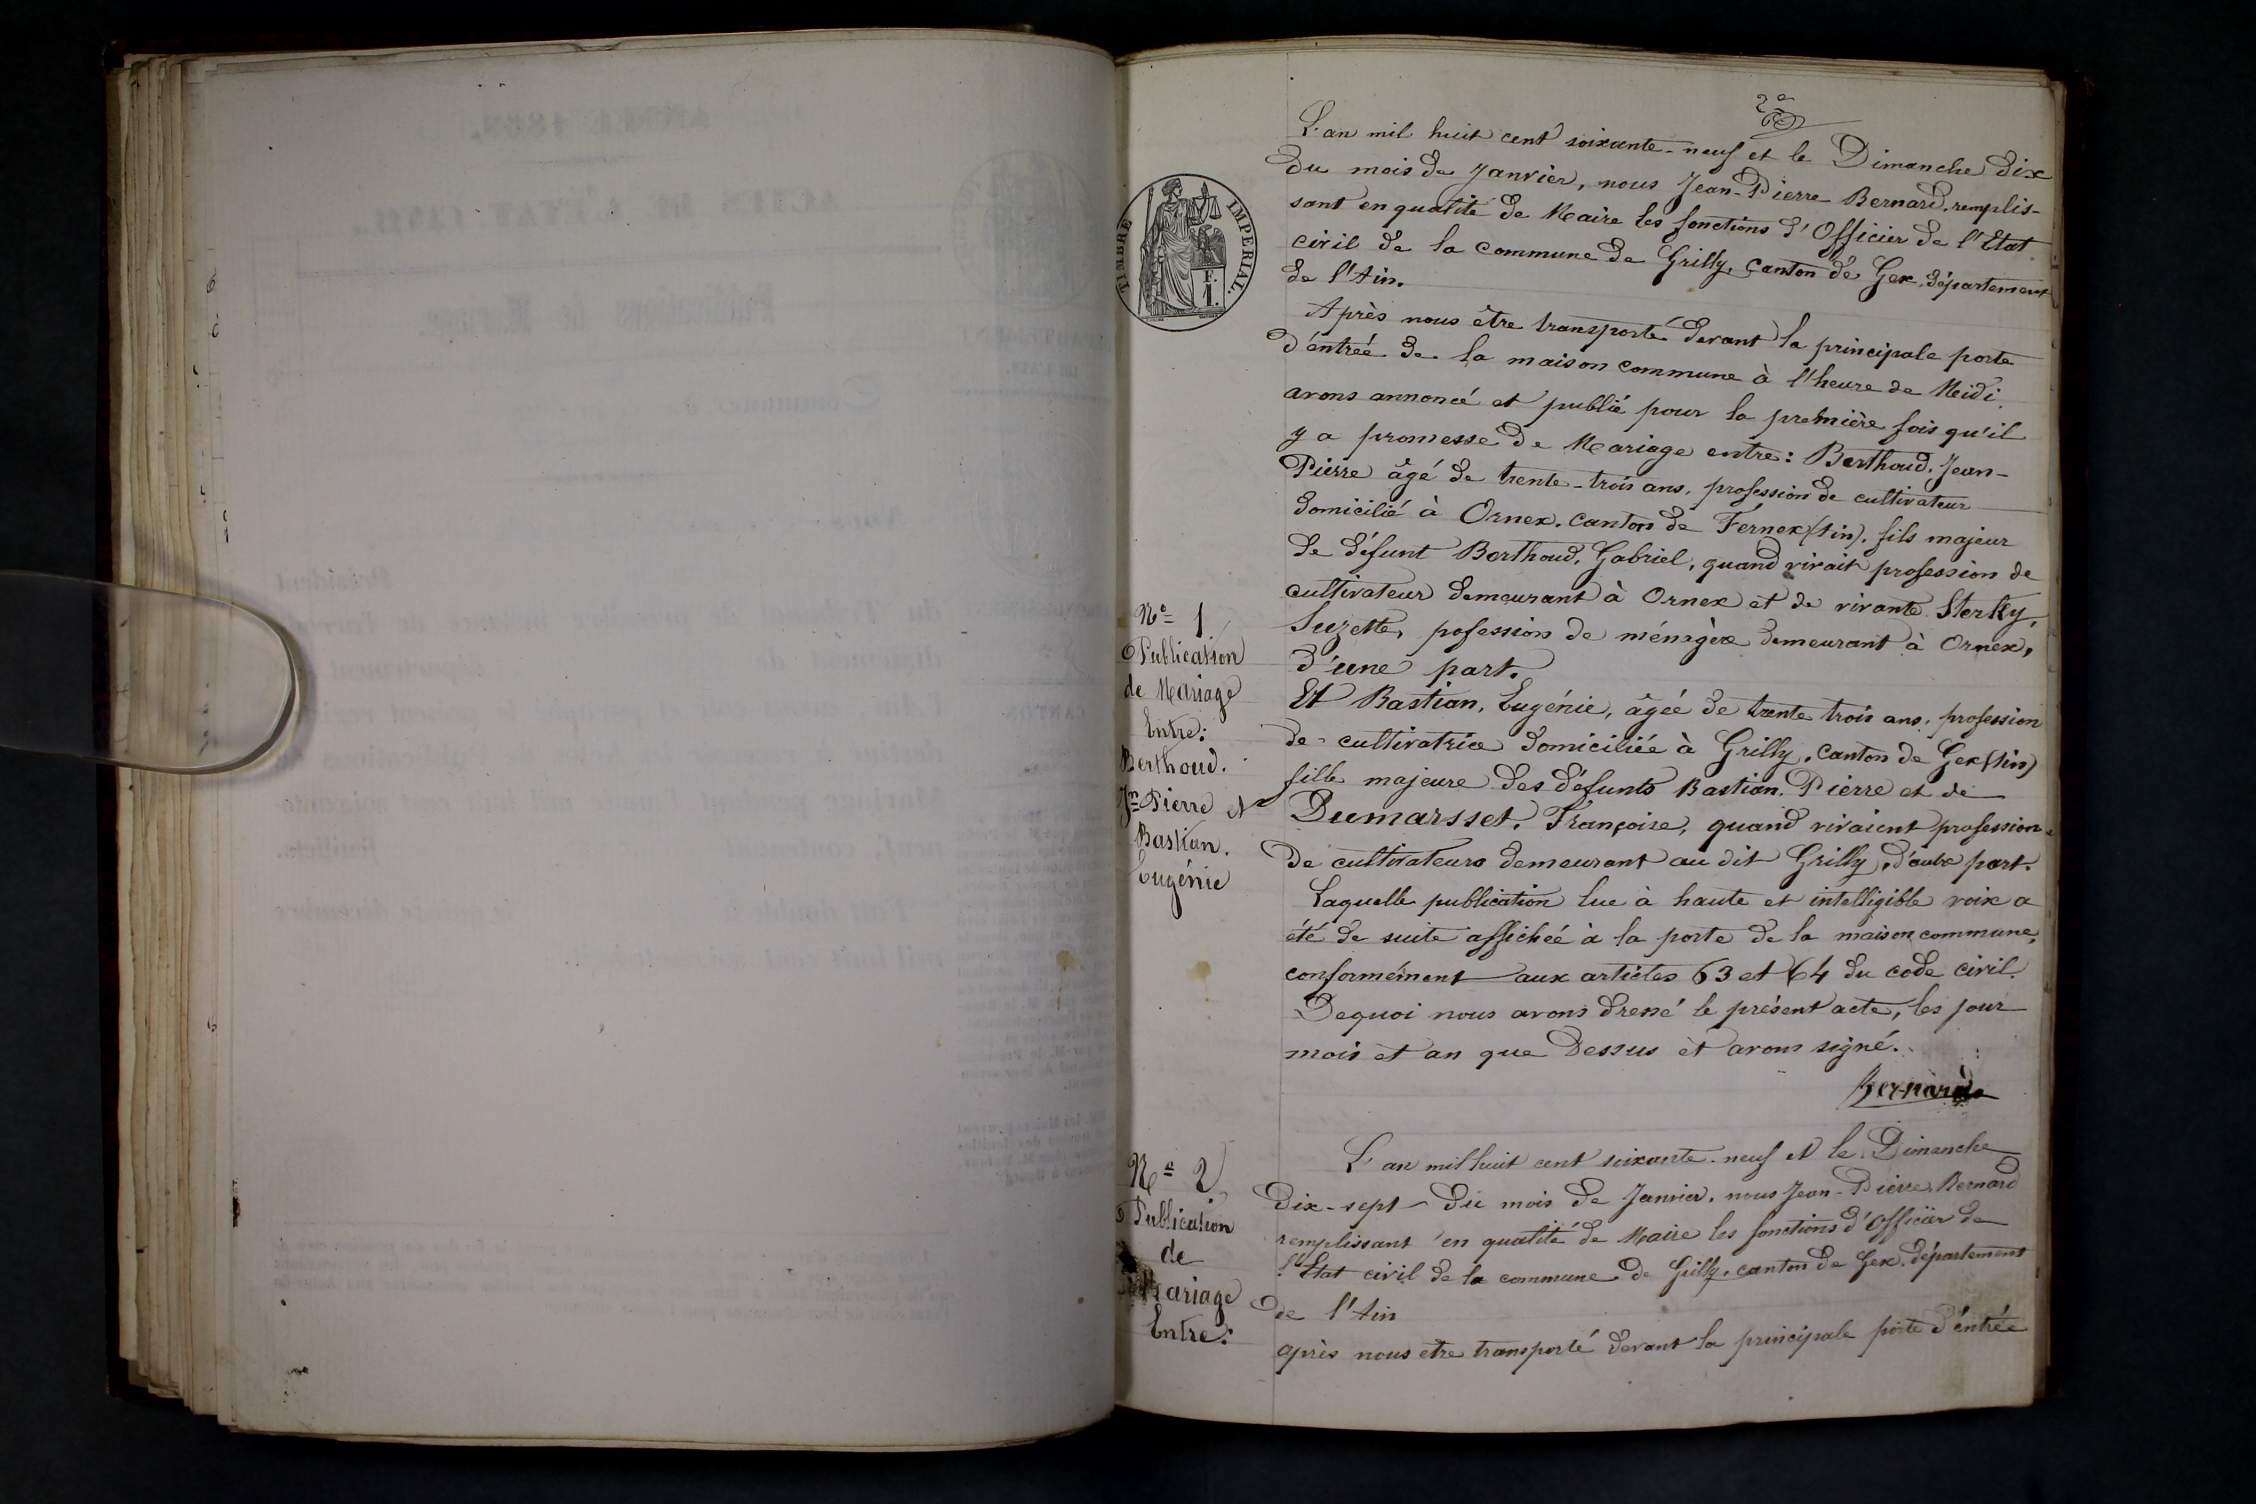 2e
L'an mil huit cent soixante-neuf et le Dimanche dix
du mois de Janvier, nous Jean-Pierre Bernard, remplis-
sant en qualité de Maire les fonctions d'Officier de l'Etat
civil de la commune de Grilly, canton de Gex, département
de l'Ain.
TIMBRE IMPERIAL.
F.
1.
Après nous être transporté devant la principale porte
d'entrée de la maison commune à l'heure de Midi
avons annoncé et publié pour la première fois qu'il
y a promesse de Mariage entre: Berthoud, Jean-
Pierre âgé de trente-trois ans, profession de cultivateur
domicilié à Ornex, canton de Fernex (Ain), fils majeur
de défunt Berthoud, Gabriel, quand vivait profession de
cultivateur demeurant à Ornex et de vivante Sterky,
Suzette, pofession de ménagère demeurant à Ornex,
d'une part.
Et Bastian, Eugénie, âgée de trente trois ans, profession
de cultivatrice domiciliée à Grilly, canton de Gex (Ain)
fille majeure des défunts Bastian, Pierre et de
Dumarsset, Françoise, quand vivaient profession
de cultivateurs demeurant au dit Grilly, d'autre part.
Laquelle publication lue à haute et intelligible voix a
été de suite affichée à la porte de la maison commune,
conformément aux articles 63 et 64 du code civil.
De quoi nous avons dressé le présent acte, les jour
mois et an que dessus et avons signé.
Bernard
No 1
Publication
de Mariage
Entre:
Berthoud.
Jn Pierre et
Bastian.
Eugénie
No 2
Publication
de
Mariage
Entre:
L'an mil huit cent soixante-neuf et le Dimanche
dix-sept du mois de Janvier, nous Jean-Pierre Bernard
remplissant en qualité de Maire les fonctions d'Officier de
l'Etat civil de la commune de Grilly, canton de Gex, département
de l'Ain
après nous etre transporté devant la principale porte d'entrée